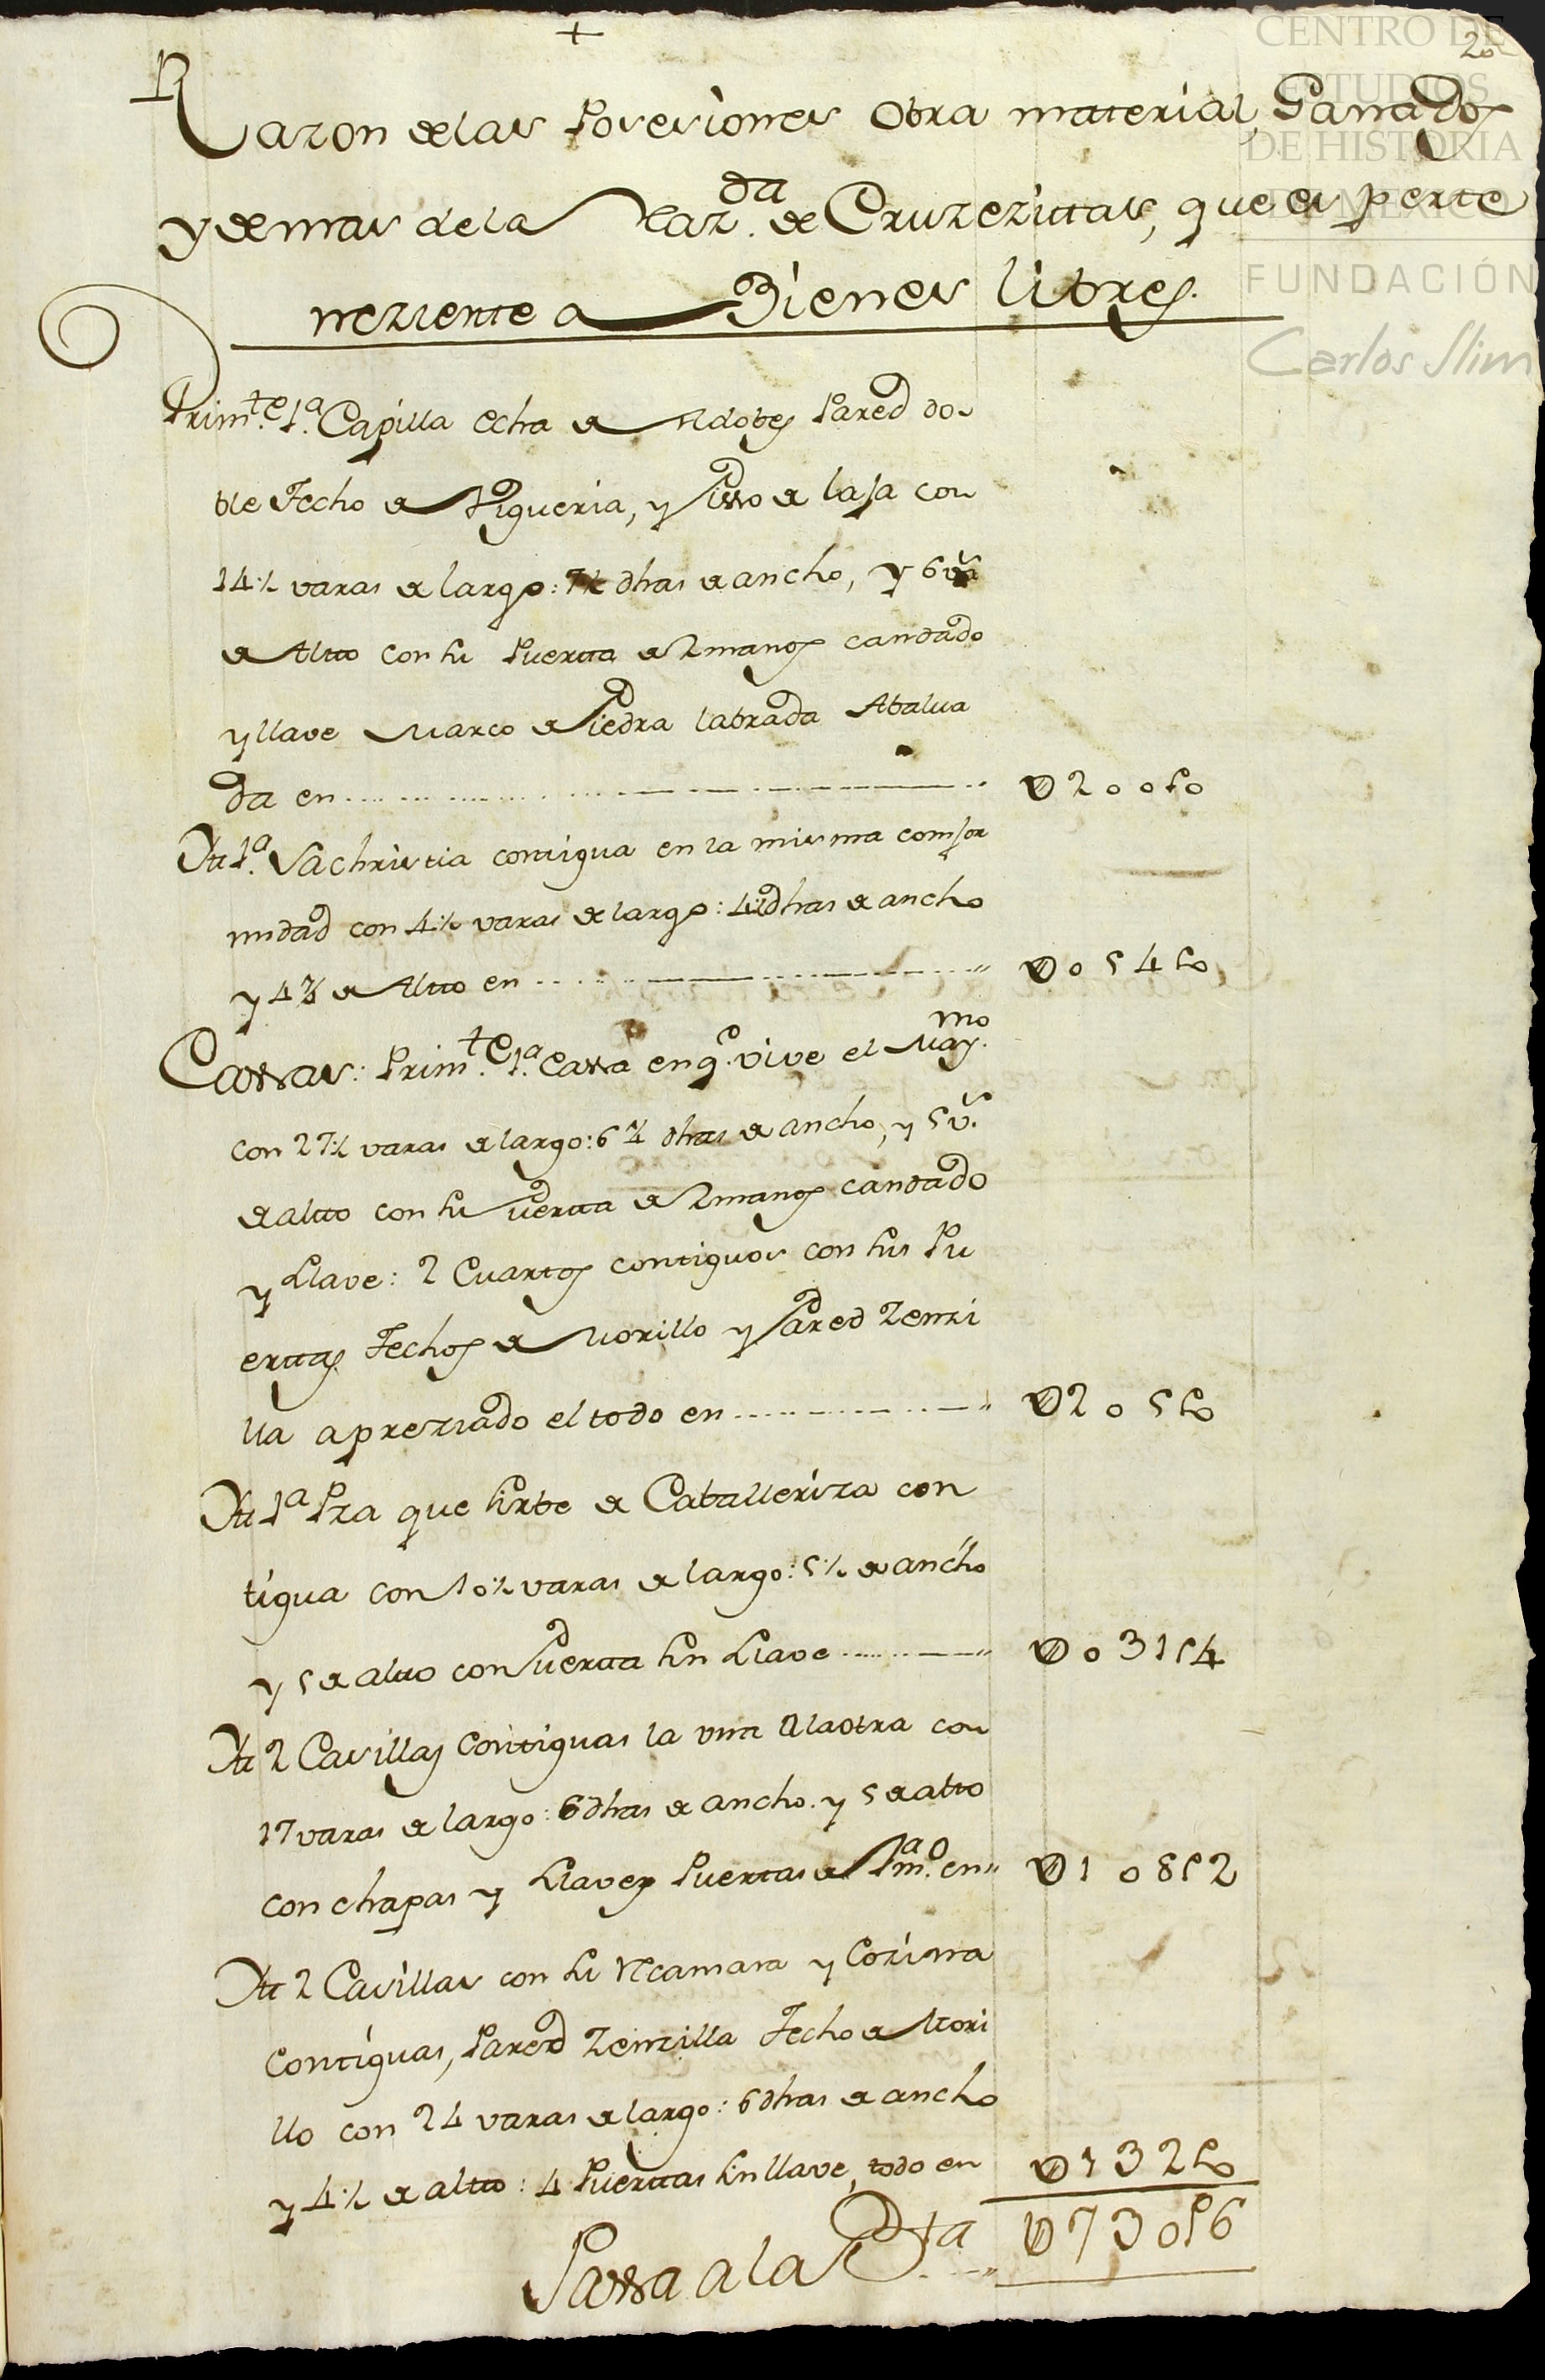 CENTRO DE
ESTUDIOS
DE HISTORIA
DE MÉXICO
FUNDACIÓN
Carlos Slim
+
2
Razon de las Posesiones Obra material, Ganados
y demas de la Haz.da de Cruzezittas, que es perte
neziente a Bienes libres.
Prim.te 1.a Capilla echa de Adobes Pared do
ble Techo de Vigueria, y Pisso de laja con
14½ varas de largo: 7½ dhas de ancho, y 6 v.s
de Altto con su Puertta de 2 manos candado
y llave Marco de Piedra labrada Abalua
da en 0200p0
Yt 1.a Sachristia contigua en la misma confor
midad con 4½ varas de largo: 4½ dhas de ancho
y 4⅓ de Altto en 0054p0
Cassas: Prim.te 1.a Cassa en q.e vive el May.mo
con 27½ varas de largo: 6¼ dhas de ancho, y 5 v.s
de altto con su Puertta de 2 manos candado
y Llave: 2 Cuartos contiguos con sus Pu
erttas Techos de Morillo y Pared Zenzi
lla apreziado el todo en 0205p0
Yt 1.a Pza que sirbe de Caballeriza con
tigua con 10½ varas de largo: 5½ de ancho
y 5 de altto con Puertta sin Llave 0031p4
Yt 2 Casillas Contiguas la una a la otra con
17 varas de largo: 6 dhas de ancho. y 5 de altto
con chapas y Llaves Puertas de 1a m.o en 0108p2
Yt 2 Casillas con su Recamara y Cozina
Contiguas, Pared Zenzilla Techo de Mori
llo con 24 varas de largo: 6 dhas de ancho
y 4½ de altto: 4 Puerttas sin llave, todo en 0132p0
Passa a la B.ta 0730p6